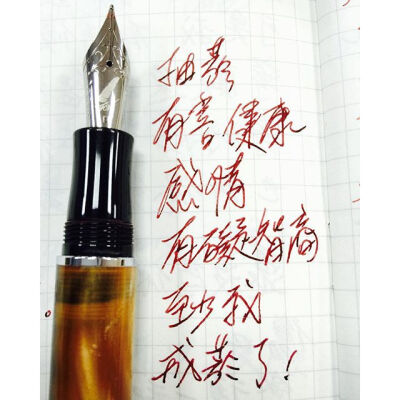 抽菸
有害健康
感情
有礙智商
至少我
戒菸了!